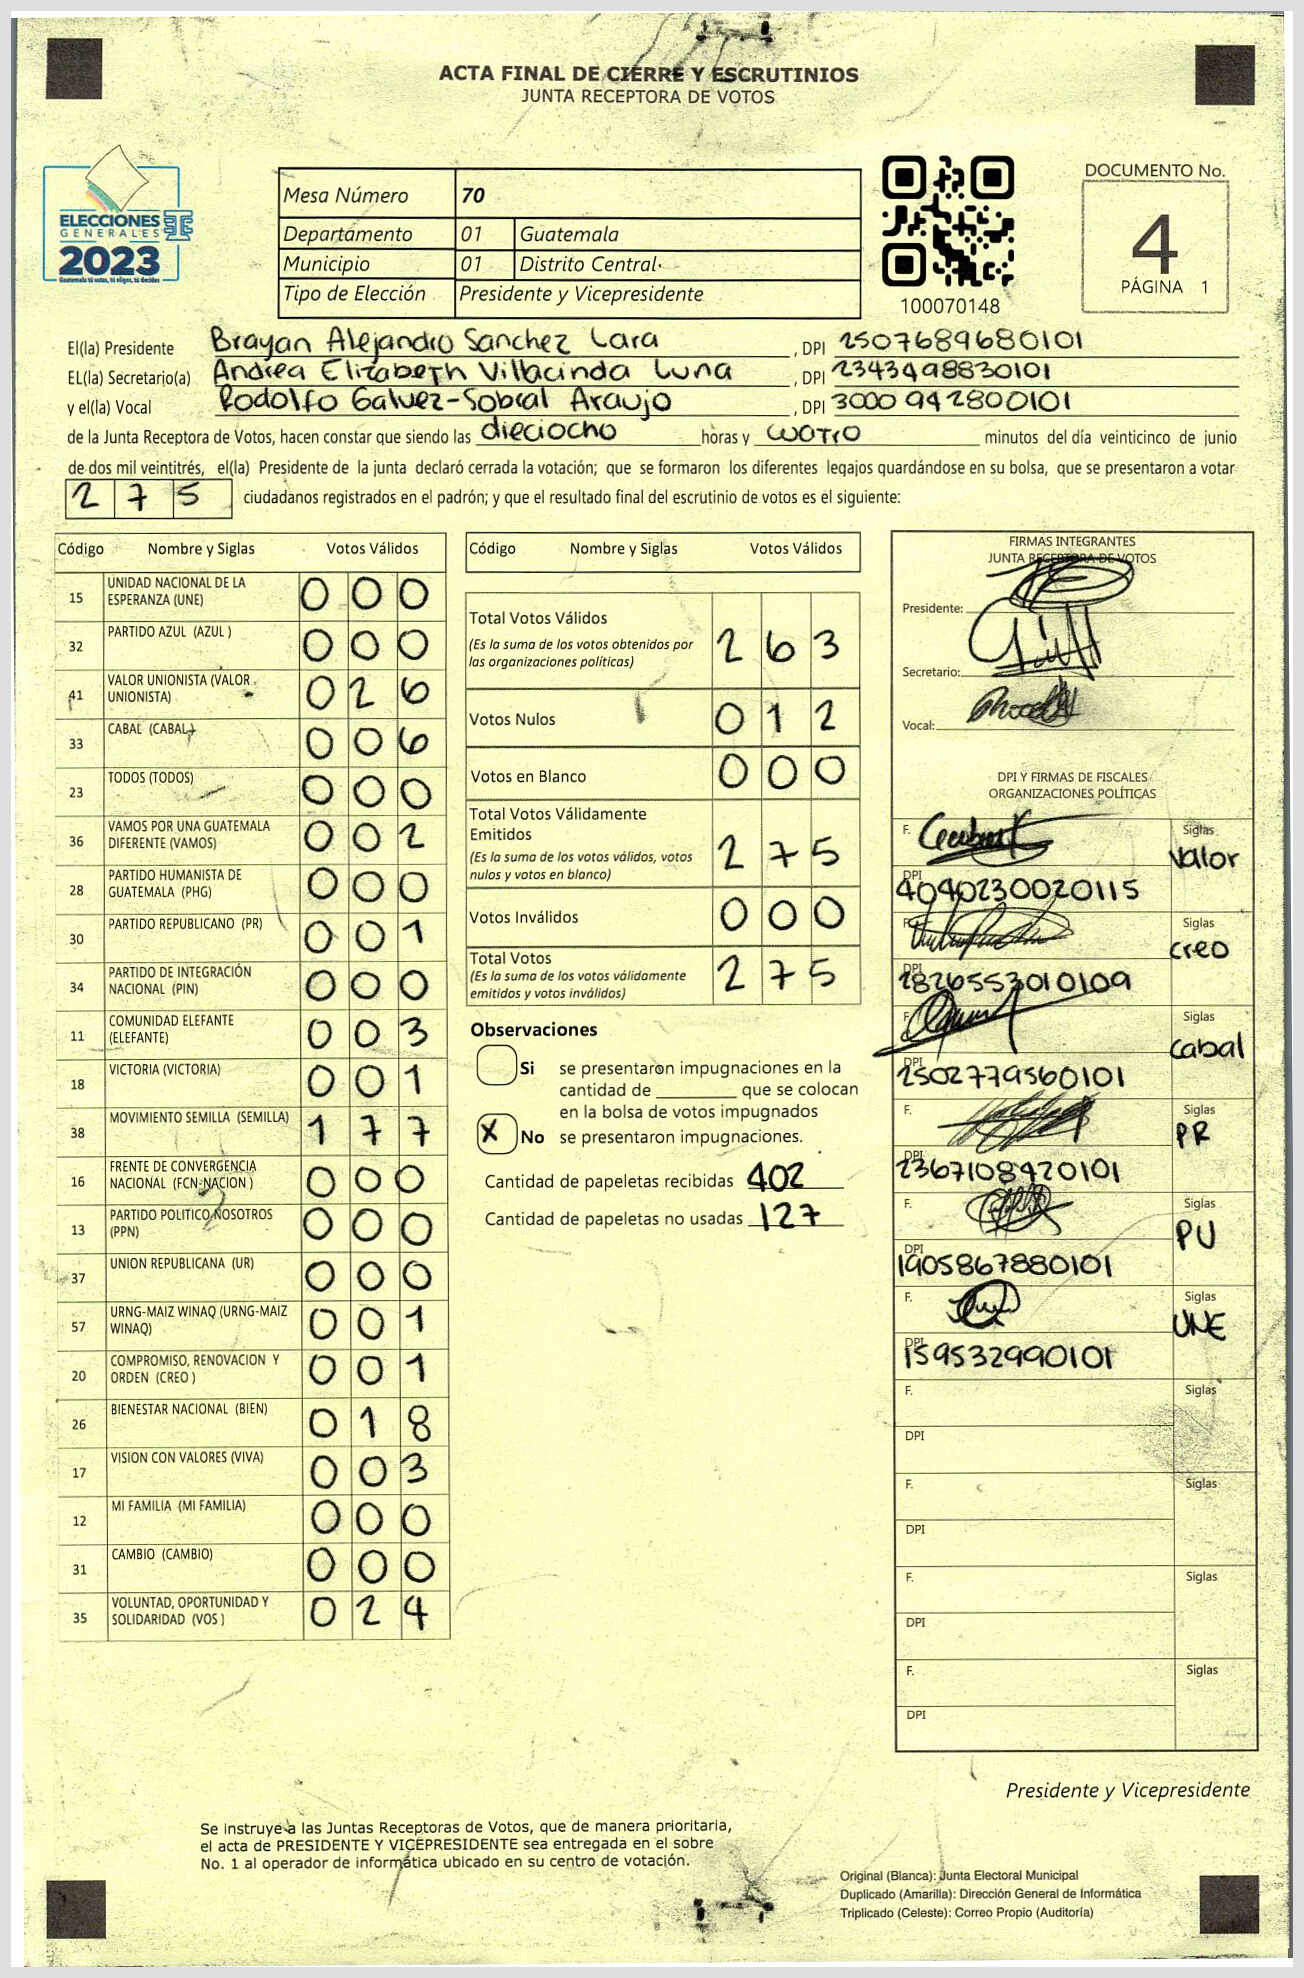 ACTA FINAL DE CIERRE Y ESCRUTINIOS
JUNTA RECEPTORA DE VOTOS
ELECCIONES
GENERALES
2023
Guatemala tú votas, tú eliges, tú decides
Mesa Número 70
Departamento 01 Guatemala
Municipio 01 Distrito Central
Tipo de Elección Presidente y Vicepresidente
100070148
DOCUMENTO No.
4
PÁGINA 1
El(la) Presidente Brayan Alejandro Sanchez Lara , DPI 2507689680101
EL(la) Secretario(a) Andrea Elizabeth Villacinda Luna , DPI 2343498830101
y el(la) Vocal Rodolfo Galvez-Sobral Araujo , DPI 3000 942800101
de la Junta Receptora de Votos, hacen constar que siendo las dieciocho horas y cuatro minutos del día veinticinco de junio
de dos mil veintitrés, el(la) Presidente de la junta declaró cerrada la votación; que se formaron los diferentes legajos quardándose en su bolsa, que se presentaron a votar
2 7 5 ciudadanos registrados en el padrón; y que el resultado final del escrutinio de votos es el siguiente:
Código Nombre y Siglas Votos Válidos
15 UNIDAD NACIONAL DE LA ESPERANZA (UNE) 0 0 0
32 PARTIDO AZUL (AZUL ) 0 0 0
41 VALOR UNIONISTA (VALOR UNIONISTA) 0 2 6
33 CABAL (CABAL) 0 0 6
23 TODOS (TODOS) 0 0 0
36 VAMOS POR UNA GUATEMALA DIFERENTE (VAMOS) 0 0 2
28 PARTIDO HUMANISTA DE GUATEMALA (PHG) 0 0 0
30 PARTIDO REPUBLICANO (PR) 0 0 1
34 PARTIDO DE INTEGRACIÓN NACIONAL (PIN) 0 0 0
11 COMUNIDAD ELEFANTE (ELEFANTE) 0 0 3
18 VICTORIA (VICTORIA) 0 0 1
38 MOVIMIENTO SEMILLA (SEMILLA) 1 7 7
16 FRENTE DE CONVERGENCIA NACIONAL (FCN-NACION ) 0 0 0
13 PARTIDO POLITICO NOSOTROS (PPN) 0 0 0
37 UNION REPUBLICANA (UR) 0 0 0
57 URNG-MAIZ WINAQ (URNG-MAIZ WINAQ) 0 0 1
20 COMPROMISO, RENOVACION Y ORDEN (CREO ) 0 0 1
26 BIENESTAR NACIONAL (BIEN) 0 1 8
17 VISION CON VALORES (VIVA) 0 0 3
12 MI FAMILIA (MI FAMILIA) 0 0 0
31 CAMBIO (CAMBIO) 0 0 0
35 VOLUNTAD, OPORTUNIDAD Y SOLIDARIDAD (VOS ) 0 2 4
Código Nombre y Siglas Votos Válidos
Total Votos Válidos
(Es la suma de los votos obtenidos por
las organizaciones políticas) 2 6 3
Votos Nulos 0 1 2
Votos en Blanco 0 0 0
Total Votos Válidamente
Emitidos
(Es la suma de los votos válidos, votos
nulos y votos en blanco) 2 7 5
Votos Inválidos 0 0 0
Total Votos
(Es la suma de los votos válidamente
emitidos y votos inválidos) 2 7 5
Observaciones
Si se presentaron impugnaciones en la
cantidad de ________ que se colocan
en la bolsa de votos impugnados
X No se presentaron impugnaciones.
Cantidad de papeletas recibidas 402
Cantidad de papeletas no usadas 127
FIRMAS INTEGRANTES
JUNTA RECEPTORA DE VOTOS
Presidente:
Secretario:
Vocal:
DPI Y FIRMAS DE FISCALES
ORGANIZACIONES POLÍTICAS
F. Siglas
Valor
DPI
4040230020115
F. Siglas
creo
DPI
2826553010109
F. Siglas
cabal
DPI
2502779560101
F. Siglas
PR
DPI
2367108420101
F. Siglas
PU
DPI
1905867880101
F. Siglas
UNE
DPI
159532990101
F. Siglas
DPI
F. Siglas
DPI
F. Siglas
DPI
F. Siglas
DPI
Presidente y Vicepresidente
Se instruye a las Juntas Receptoras de Votos, que de manera prioritaria,
el acta de PRESIDENTE Y VICEPRESIDENTE sea entregada en el sobre
No. 1 al operador de informática ubicado en su centro de votación.
Original (Blanca): Junta Electoral Municipal
Duplicado (Amarilla): Dirección General de Informática
Triplicado (Celeste): Correo Propio (Auditoría)